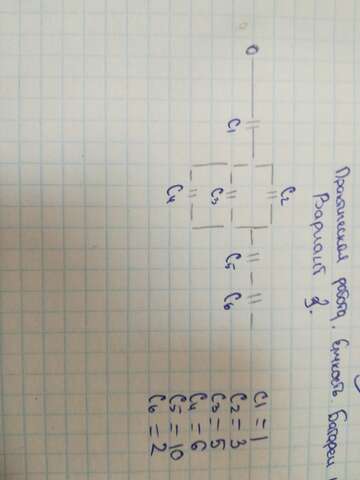 Практическая работа. Емкость. Батареи
Вариант 3.
C2
C1
C3
C5
C6
C4
C1 = 1
C2 = 3
C3 = 5
C4 = 6
C5 = 10
C6 = 2